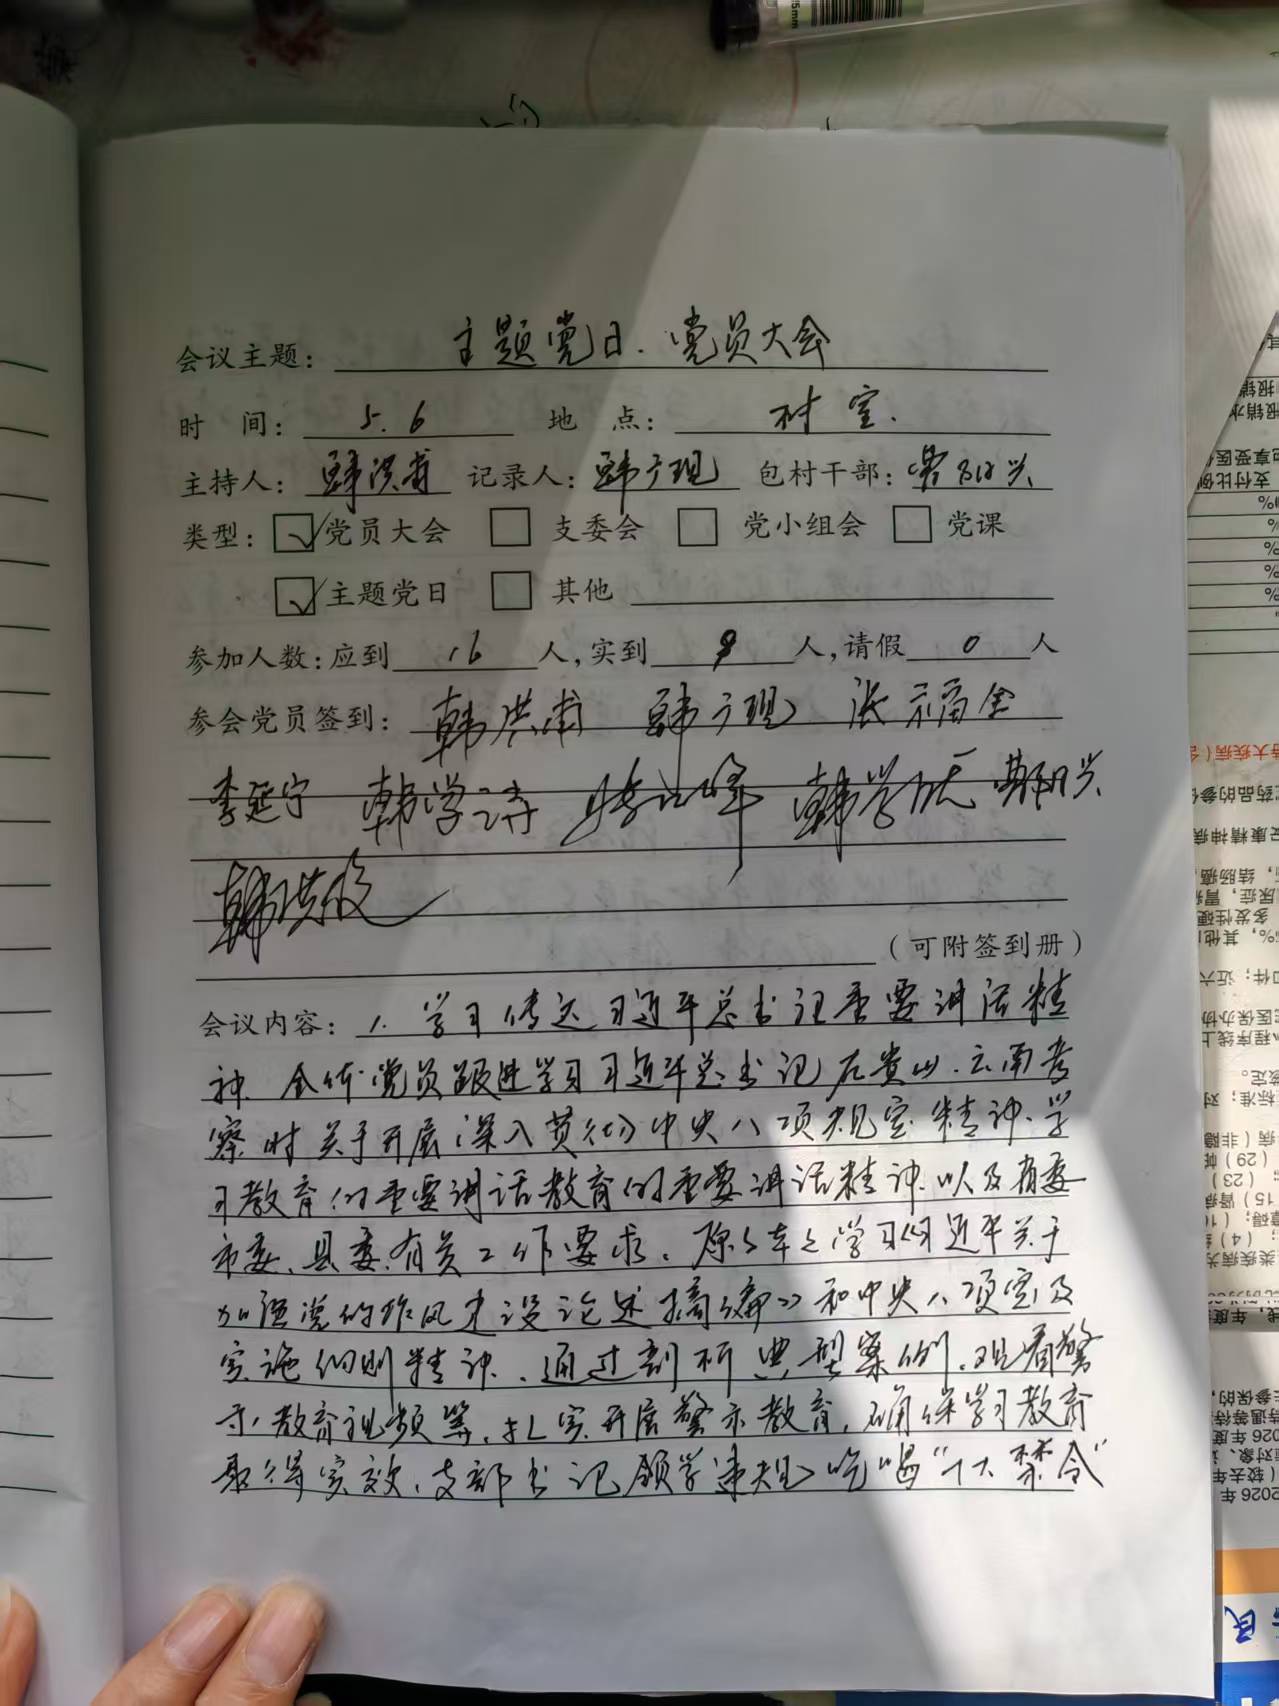 会议主题: 主题党日、党员大会
时 间: 5.6 地 点: 村室.
主持人: 韩洪甫 记录人: 韩广现 包村干部: 兴
类型: 党员大会 支委会 党小组会 党课
主题党日 其他
参加人数:应到 16 人,实到 9 人,请假 0 人
参会党员签到: 韩洪甫 韩广现 张福全
李延宁 韩学诗 韩学 兴
韩洪俊
(可附签到册)
会议内容: 1. 学习传达习近平总书记重要讲话精
神、全体党员跟进学习习近平总书记在贵州、云南考
察时关于开展深入贯彻中央八项规定精神、学
习教育的重要讲话教育的重要讲话精神以及省委
市委、县委有关工作要求。原原本本学习《习近平关于
加强党的作风建设论述摘编》和中央八项定及
实施细则精神、通过剖析典型案例、观看警
示教育视频等、扎实开展警示教育,确保学习教育
取得实效、支部书记领学违规吃喝“十大禁令”